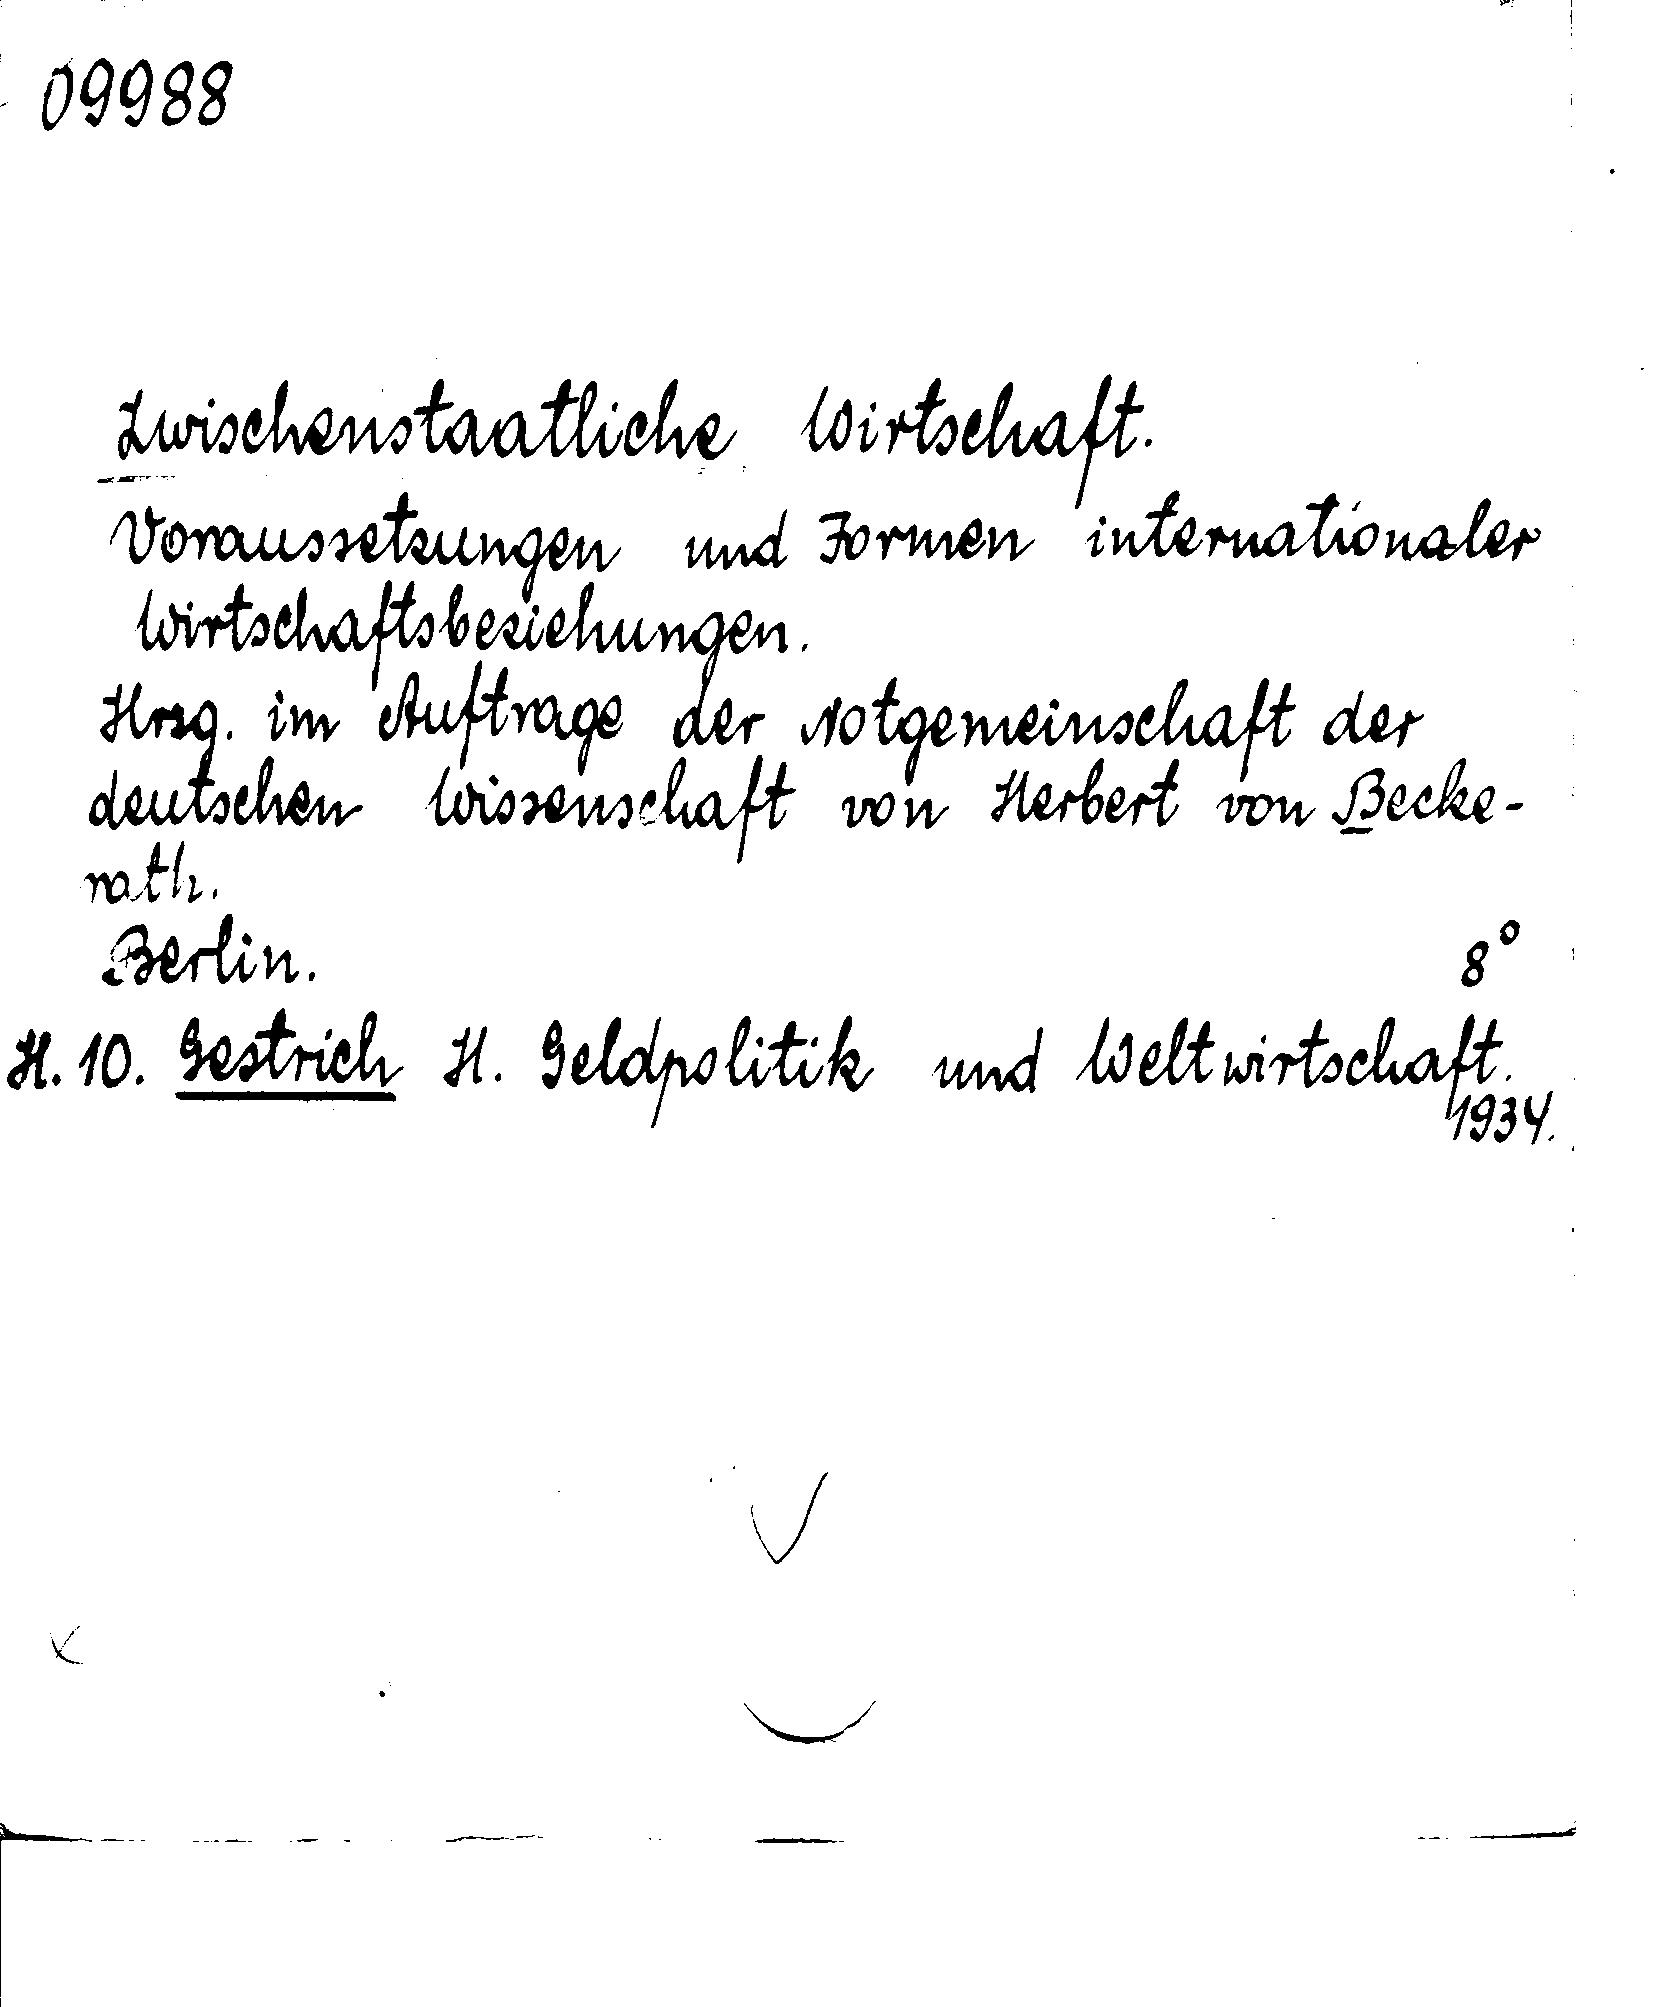 09988
Zwischenstaatliche Wirtschaft.
Voraussetzungen und Formen internationaler
Wirtschaftsbeziehungen.
Hrsg. im Auftrage der Notgemeinschaft der
deutschen Wissenschaft von Herbert von Becke-
rath.
Berlin. 8°
H. 10. Gestrich H. Geldpolitik und Weltwirtschaft.
1934.